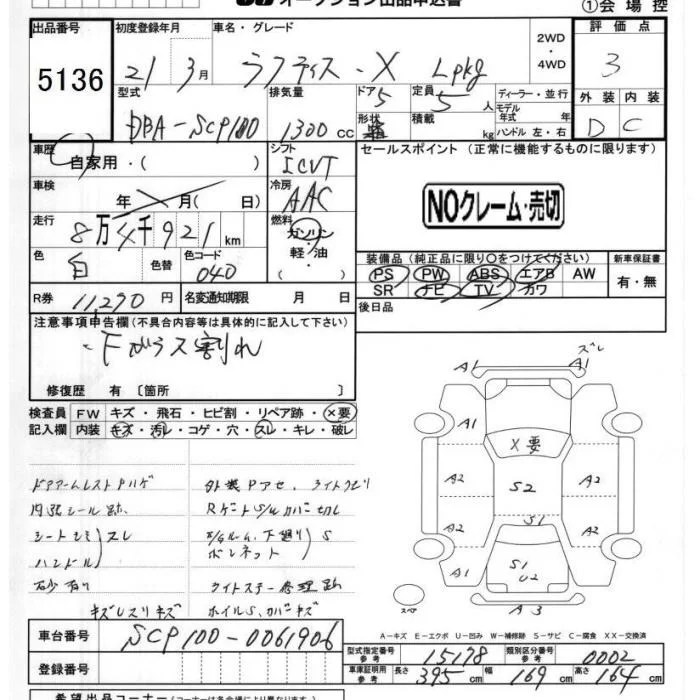 オークション出品申込書
①会場控
出品番号
5136
初度登録年月
21 3月
車名・グレード
ラクティス・X Lpkg
2WD
・
4WD
評価点
3
型式
DBA-SCP100
排気量
1300cc
ドア
5
定員
5人
ディーラー・並行
形状
積載
kg
モデル
年式 年
ハンドル 左・右
外装 内装
D C
車歴
自家用・( )
シフト
ICVT
セールスポイント (正常に機能するものに限ります)
車検
年 月( 日)
冷房
AAC
NOクレーム・売切
走行
8万4千921km
燃料
ガソリン
軽・油
・( )
色
白
色替
色コード
040
装備品(純正品に限り○をつけてください)
新車保証書
PS PW ABS エアB AW
SR ナビ TV カワ
有・無
R券 11,290円
名変通知期限 月 日
後日品
注意事項申告欄(不具合内容等は具体的に記入して下さい)
・Fガラス割れ
修復歴 有 〔箇所 〕
検査員
記入欄
FW キズ・飛石・ヒビ割・リペア跡・×要
内装 キズ・汚レ・コゲ・穴・スレ・キレ・破レ
ドアアームレストハゲ
内張シール跡
シート スレ
ハンドル
石砂有り
キズ スリキズ
外装Pアセ、ライトクモリ
RゲートS/W カバー切レ
下廻り S
ボンネット
ライトステー修理跡
ホイルS、カバーキズ
A1 A1 ズレ
A1
X要
A2 S2 A2
A2 S1 A2
A1 S1 U2 A1
A3
スペア
A-キズ E-エクボ U-凹み W-補修跡 S-サビ C-腐食 XX-交換済
車台番号
SCP100-0061906
型式指定番号
参考
15178
類別区分番号
参考
0002
登録番号
車検証用寸法
参考
長さ 395cm 幅 169cm 高さ 164cm
希望出品コーナー(コーナーは各会場により異なります)